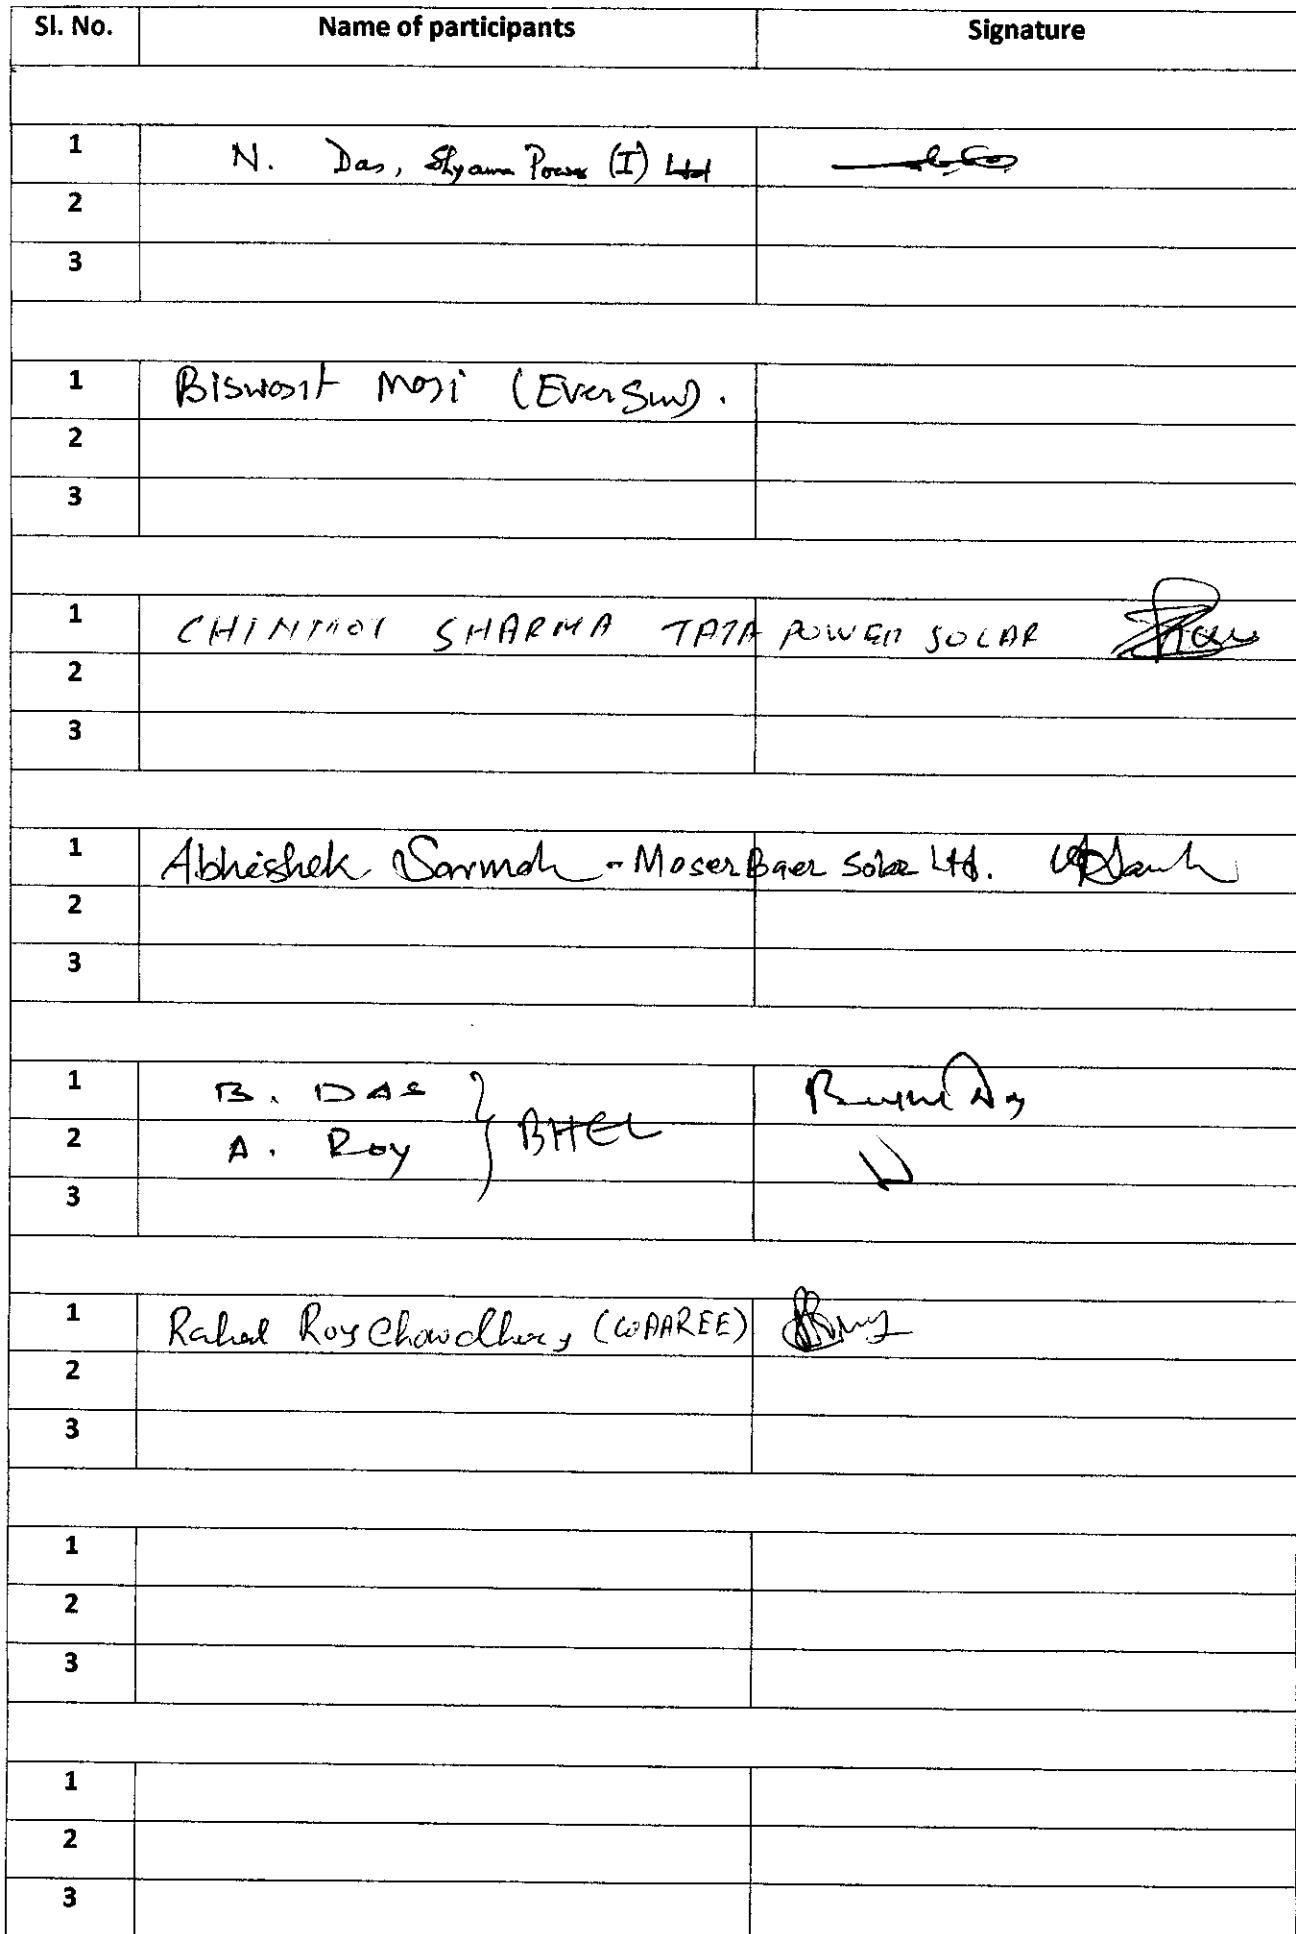 Sl. No. Name of participants Signature
1 N. Das, Shyama Power (I) Ltd
2
3
1 (EverSun).
2
3
1 SHARMA TATA POWER SOLAR
2
3
1 Abhishek Sarmah - Moser Baer Solar Ltd.
2
3
1 B. DAS
2 A. Roy } BHEL
3
1 Rahul Roy Chowdhury (WAAREE)
2
3
1
2
3
1
2
3